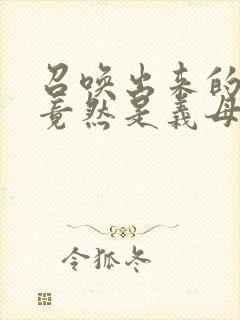 召唤出来的
竟然是义母
令狐冬